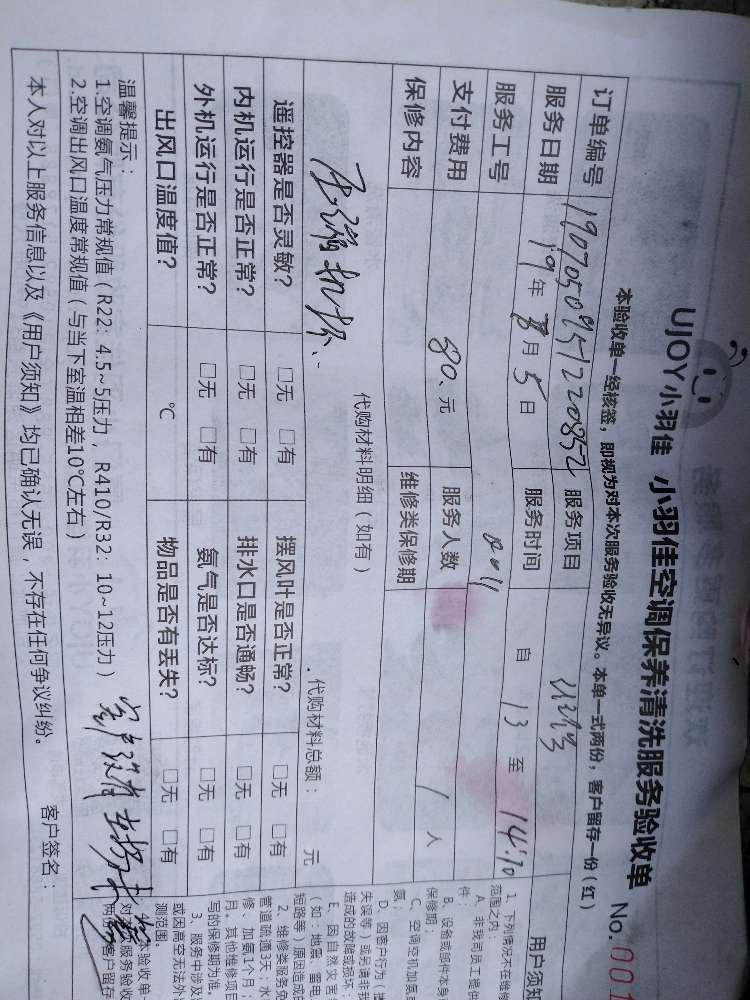 UJOY小羽佳 小羽佳空调保养清洗服务验收单 No.001
本验收单一经核签，即视为对本次服务验收无异议。本单一式两份，客户留存一份(红)
订单编号 服务项目
服务日期 19年 月5日 服务时间 自13至14:10
服务工号 8011
支付费用 80、元 服务人数 1人
保修内容 维修类保修期
代购材料明细(如有) 代购材料总额： 元
遥控器是否灵敏? □无 □有 摆风叶是否正常? □无 □有
内机运行是否正常? □无 □有 排水口是否通畅? □无 □有
外机运行是否正常? □无 □有 氨气是否达标? □无 □有
出风口温度值? ℃ 物品是否有丢失? □无 □有
温馨提示：
1.空调氨气压力常规值(R22：4.5~5压力，R410/R32：10~12压力)
2.空调出风口温度常规值(与当下室温相差10℃左右)
本人对以上服务信息以及《用户须知》均已确认无误，不存在任何争议纠纷。 客户签名：
用户须知
1、下列情况不在维修
范围之内：
A、非我司员工提供
件；
B、设备或部件本身
保修期；
C、空调空机加氨
氨；
D、因客户行为(
失误等)或另请非我
造成的故障或损坏；
E、因自然灾害
(如：地震、雷电
短路等)原因造成
2、维修类服务免
管道疏通3天；水
修、加氨1个月；
月。其他维修项目
写的保修期为准。
3、服务中涉及
或因高空无法外
测范围。
验收单
对 服务验收
两份，客户留存